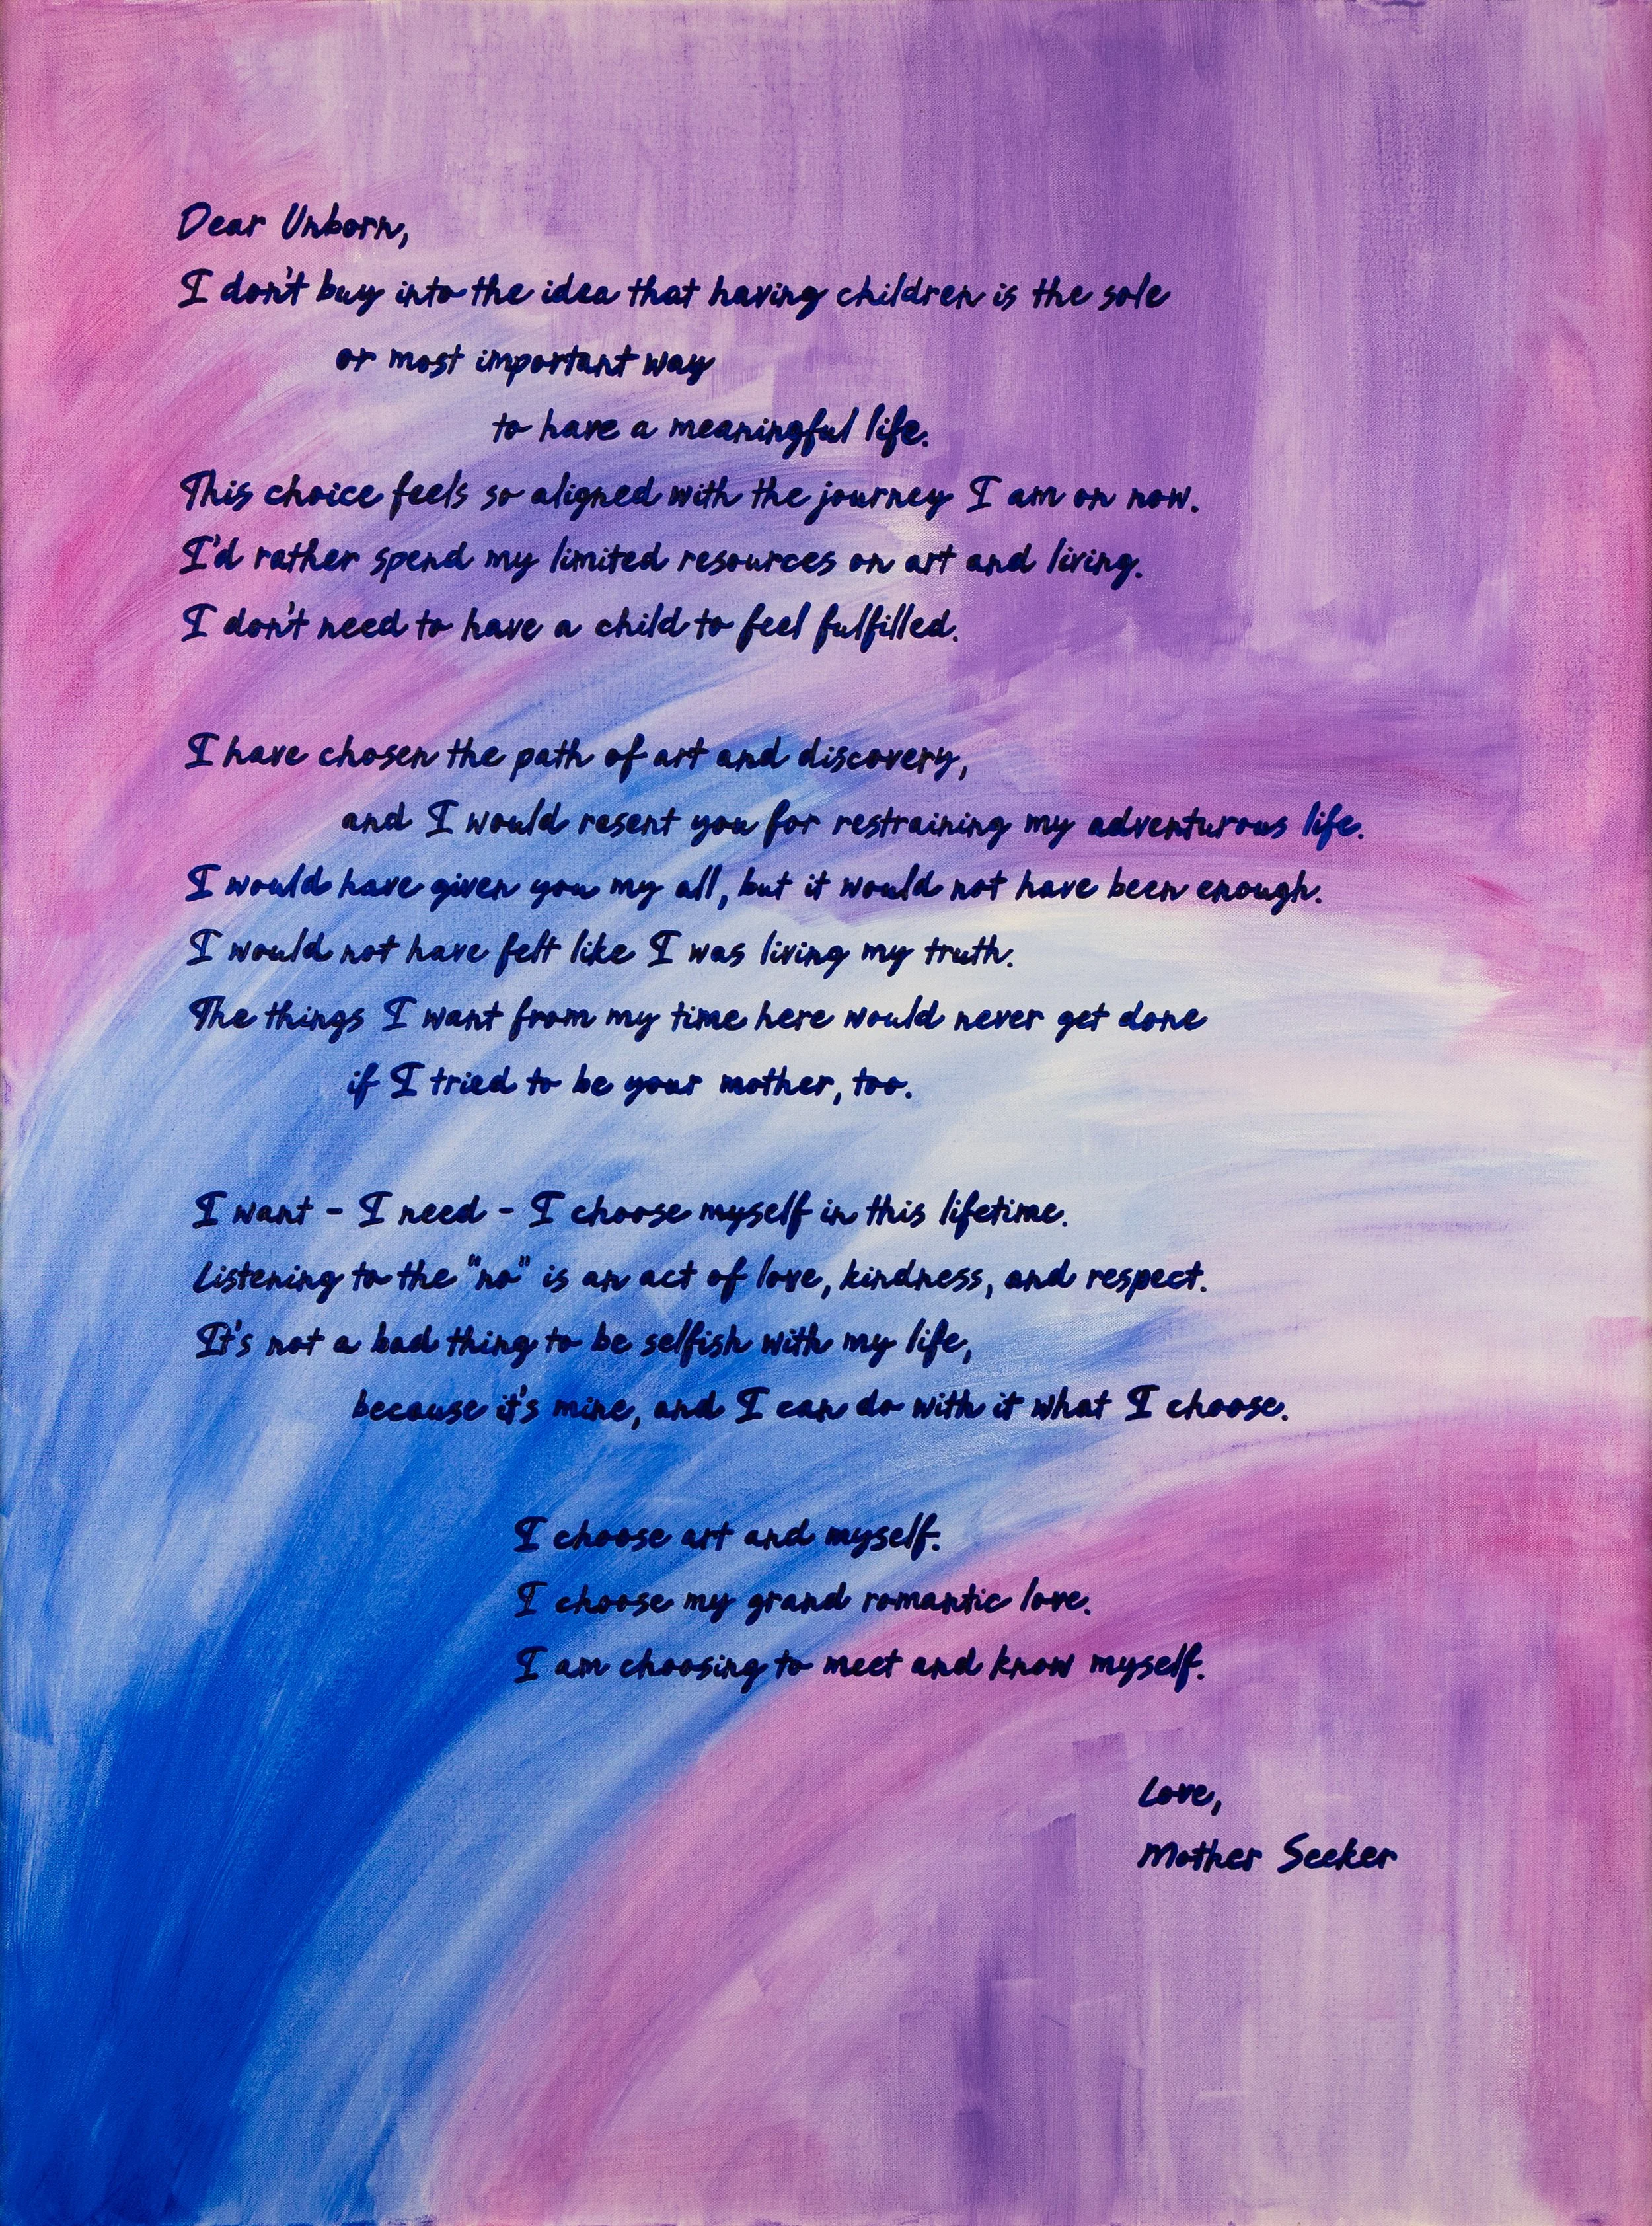 Dear Unborn,
I don't buy into the idea that having children is the sole
or most important way
to have a meaningful life.
This choice feels so aligned with the journey I am on now.
I'd rather spend my limited resources on art and living.
I don't need to have a child to feel fulfilled.
I have chosen the path of art and discovery,
and I would resent you for restraining my adventurous life.
I would have given you my all, but it would not have been enough.
I would not have felt like I was living my truth.
The things I want from my time here would never get done
if I tried to be your mother, too.
I want - I need - I choose myself in this lifetime.
Listening to the "no" is an act of love, kindness, and respect.
It's not a bad thing to be selfish with my life,
because it's mine, and I can do with it what I choose.
I choose art and myself.
I choose my grand romantic love.
I am choosing to meet and know myself.
Love,
Mother Seeker